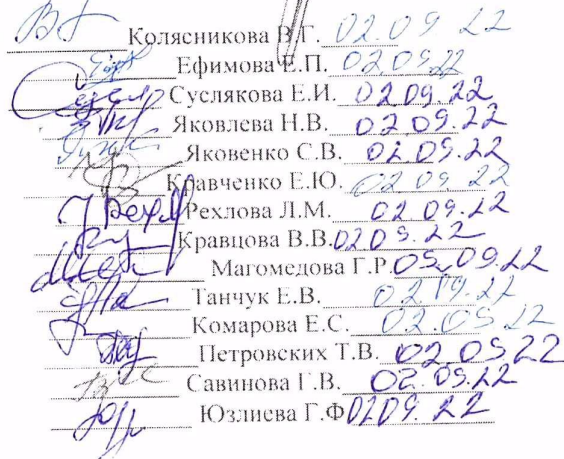 Колясникова В.Г. 02.09.22
Ефимова Е.П. 02.09.22
Суслякова Е.И. 02.09.22
Яковлева Н.В. 02.09.22
Яковенко С.В. 02.09.22
Кравченко Е.Ю. 02.09.22
Рехлова Л.М. 02.09.22
Кравцова В.В. 02.09.22
Магомедова Г.Р. 05.09.22
Танчук Е.В. 02.09.22
Комарова Е.С. 02.09.22
Петровских Т.В. 02.09.22
Савинова Г.В. 02.09.22
Юзлиева Г.Ф 02.09.22